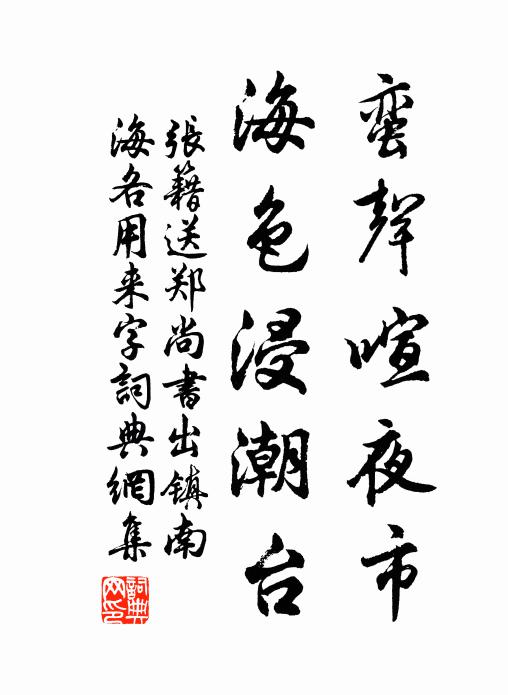 蛮聲喧夜市
海色浸潮台
張籍送郑尚書出镇南
海各用来字詞典網集
詞典
网印